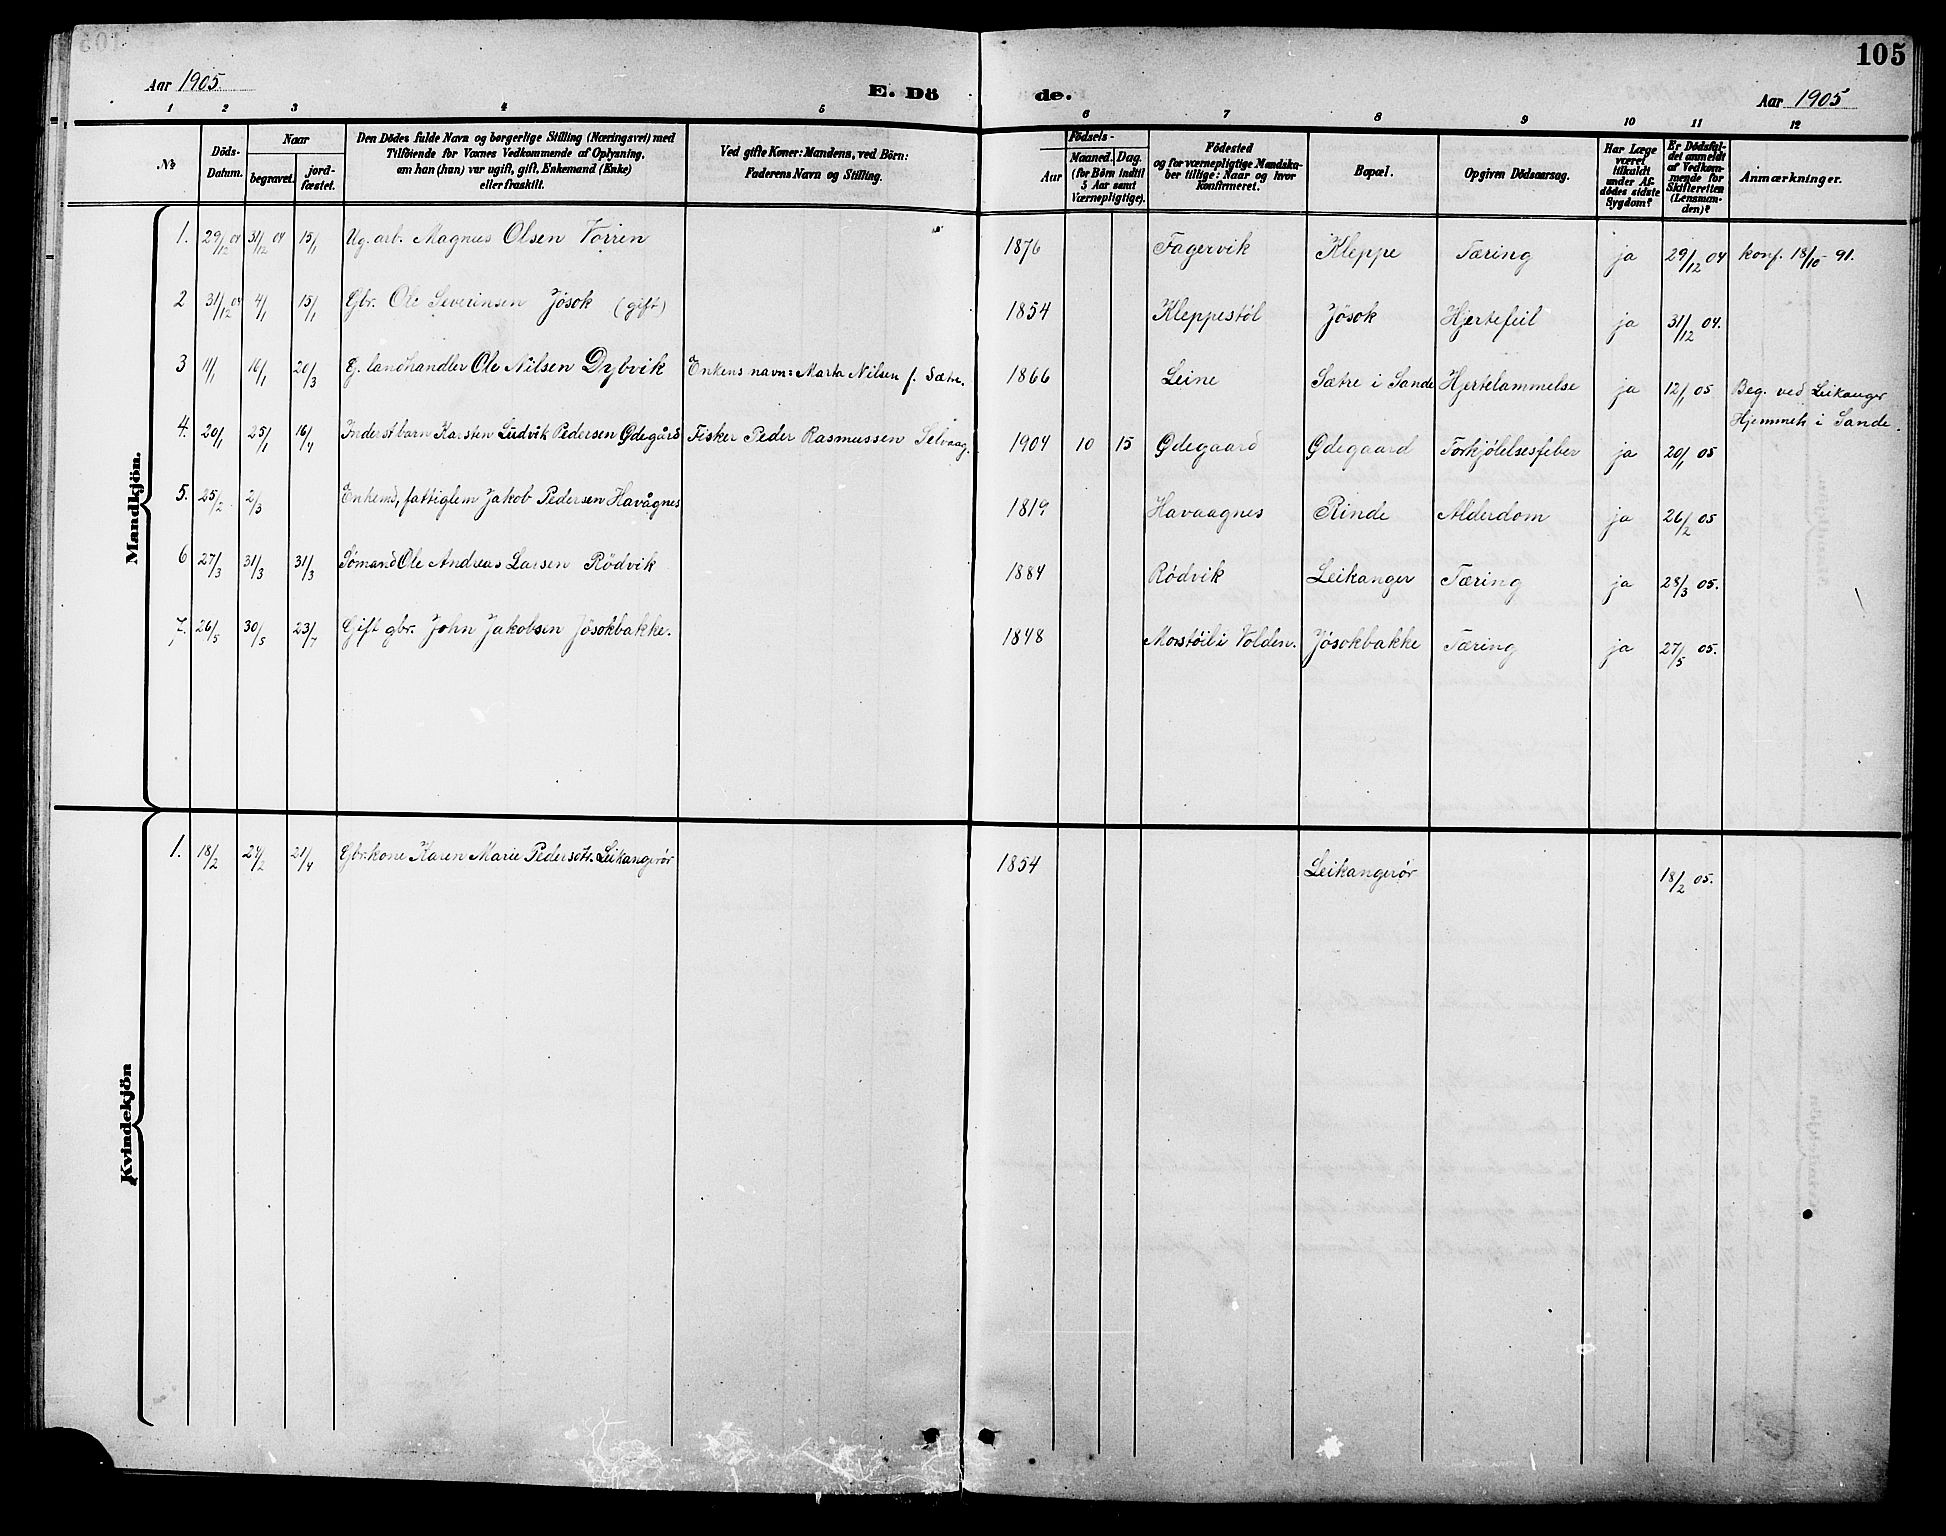 105
Aar 1905
E. Dö
de.
Aar 1905
1 2 3 4 5 6 7 8 9 10 11 12
№ Döds-Datum. Naar begravet. jord-fæstet. Den Dödes fulde Navn og borgerlige Stilling (Næringsvei) med Tilföiende for Værnes Vedkommende af Oplysning, om han (hun) var ugift, gift, Enkemand (Enke) eller fraskilt. Ved gifte Koner: Mandens, ved Börn: Faderens Navn og Stilling. Födsels- Aar Maaned. Dag. (for Börn indtil 5 Aar samt Værnepligtige). Födested og for værnepligtige Mandskaber tillige: Naar og hvor konfirmeret. Bopæl. Opgiven Dödsaarsag. Har Læge været tilkaldt under Afdödes sidste Sygdom? Er Dödsfaldet anmeldt af Vedkommende for Skifteretten (Lensmanden)? Anmærkninger.
Mandkjön.
1. 29/12 04 31/12 04 15/1 Ug. arb. Magnus Olsen Vorren 1876 Fagervik Kleppe Tæring ja 29/12 04 konf. 18/10 - 91.
2 31/12 04 4/1 15/1 Gbr. Ole Severinsen Jøsok (gift) 1854 Kleppestøl Jøsok Hjertefeil ja 31/12 04.
3 11/1 16/1 20/3 G. landhandler Ole Nilsen Dybvik Enkens navn: Marta Nilsen f. Sætre. 1866 Leine Sætre i Sande Hjertelammelse ja 12/1 05 Beg. ved Leikanger
Hjemmeh i Sande.
4. 20/1 25/1 16/4 Inderst barn Karsten Ludvik Pedersen Ødegård Fisker Peder Rasmussen Selvaag. 1904 10 15 Ødegaard Ødegaard Forkjølelsesfeber ja 20/1 05
5. 25/2 2/3 Enkemd, fattiglem Jakob Pedersen Havågnes 1819 Havaagnes Rinde Alderdom ja 26/2 05
6 27/3 31/3 31/3 Sømand Ole Andreas Larsen Rødvik 1884 Rødvik Leikanger Tæring ja 28/3 05.
7. 26/5 30/5 23/7 Gift gbr. John Jakobsen Jøsokbakke. 1848 Morstøil i Volden. Jøsokbakke Tæring ja 27/5 05.
Kvindekjön
1. 18/2 24/2 21/4 Gbr.kone Karen Marie Pedersdtr. Leikangerør 1854 Leikangerør 18/2 05.